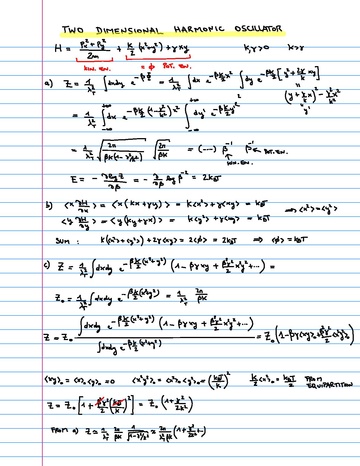 TWO DIMENSIONAL HARMONIC OSCILLATOR
H = (p_x² + p_y²)/2m + K/2 (x²+y²) + γxy    K,γ>0    K>γ
KIN. EN.    = ϕ POT. EN.
a) Z = 1/λ_T² ∫dxdy e^{-βϕ} = 1/λ_T² ∫dx e^{-βK/2 x²} ∫dy e^{-βK/2 [y² + 2γ/K xy]}
(y + γ/K x)² - γ²/K² x²
y'
= 1/λ_T² ∫_{-∞}^{+∞} dx e^{-βK/2 (1-γ²/K²) x²} ∫_{-∞}^{+∞} dy' e^{-βK/2 y'²}
= 1/λ_T² √(2π/(βK(1-γ²/K²))) √(2π/βK) = (---) β⁻¹ β⁻¹
POT. EN.
KIN. EN.
E = - ∂log Z/∂β = - ∂/∂β log β⁻² = 2k_BT
b) <x ∂H/∂x> = <x (Kx+γy)> = K<x²> + γ<xy> = k_BT
<y ∂H/∂y> = <y (Ky+γx)> = K<y²> + γ<xy> = k_BT    ⇒ <x²> = <y²>
SUM : K(<x²>+<y²>) + 2γ<xy> = 2<ϕ> = 2k_BT ⇒ <ϕ> = k_BT
c) Z = 1/λ_T² ∫dxdy e^{-βK/2 (x²+y²)} (1 - βγxy + β²γ²/2 x²y² + ...) =
Z₀ = 1/λ_T² ∫dxdy e^{-βK/2 (x²+y²)} = 1/λ_T² 2π/βK
Z = Z₀ ∫dxdy e^{-βK/2 (x²+y²)} (1 - βγxy + β²γ²/2 x²y² + ...) / ∫dxdy e^{-βK/2 (x²+y²)} = Z₀ (1 - βγ<xy>₀ + β²γ²/2 <x²y²>₀
<xy>₀ = <x>₀<y>₀ = 0    <x²y²>₀ = <x²>₀<y²>₀ = (k_BT/K)²    K/2 <x²>₀ = k_BT/2 FROM
EQUIPARTITION
Z = Z₀ [1 + β²γ²/2 (k_BT/K)²] = Z₀ (1 + γ²/2K²)
FROM a) Z = 1/λ_T² 2π/βK 1/√(1-γ²/K²) ≃ 1/λ_T² 2π/βK (1 + γ²/2K² ...)